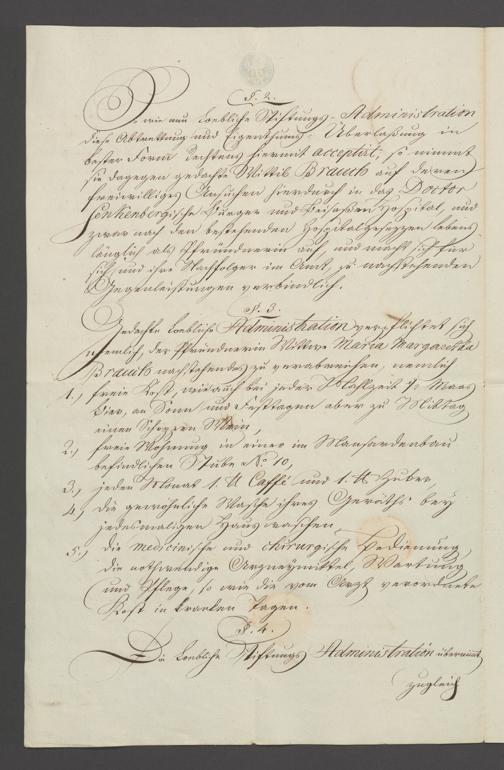 §. 2.
So wie nun Loebliche Stiftungs-Administration
diese Abtrettung und Eigenthums-Überlaßung in
bester Form Rechtens hiermit acceptirt, so nimmt
sie dagegen gedachte Wittib Brauth auf deren
freiwilliges Ansuchen hierdurch in das Doctor
Senkenbergische Bürger und Beisaßen Hospital, und
zwar nach den bestehenden Hospitalgesezzen lebens-
länglich als Pfründnerin auf und macht sich für
sich und ihre Nachfolger im Amt, zu nachstehenden
Gegenleistungen verbindlich.
§. 3.
Gedachte Loebliche Administration verpflichtet sich
nehmlich, der Pfründnerin Wittwe Maria Margaretha
Brauth nachstehendes zu verabreichen, nemlich
1.) freie Kost, wie auch bei jeder Mahlzeit ½ Maas
Bier, an Sonn und Festtagen aber zu Mittag
einen Schoppen Wein,
2.) freie Wohnung in einer im Mansardenbau
befindlichen Stube No 10,
3.) jeden Monat 1. ℔ Caffé und 1. ℔ Zucker,
4.) die gewöhnliche Wasche ihres Geräths bey
jedesmaligen Hauswaschen,
5.) die medicinische und chirurgische Bedienung,
die nothwendige Arzneymittel, Wartung
und Pflege, so wie die vom Arzt verordnete
Kost in kranken Tagen.
§. 4.
Die Loebliche Stiftungs Administration übernimmt
zugleich